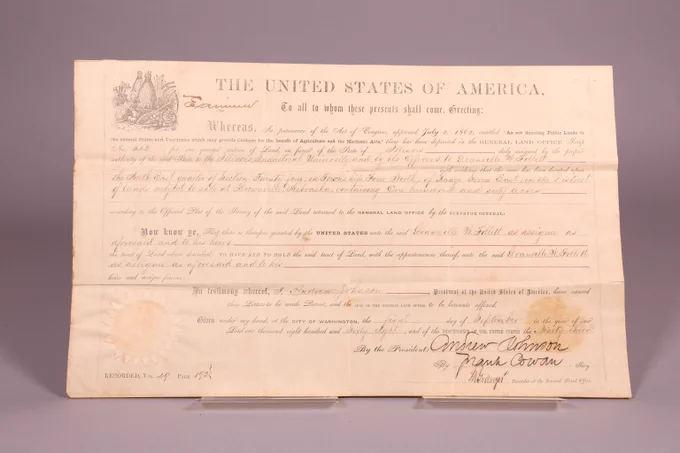 THE UNITED STATES OF AMERICA,
Examined
To all to whom these presents shall come, Greeting:
Whereas, In pursuance of the Act of Congress, approved July 2, 1862, entitled "An act donating Public Lands to
the several States and Territories which may provide Colleges for the benefit of Agriculture and the Mechanic Arts," there has been deposited in the GENERAL LAND OFFICE Scrip
for one quarter section of Land, in favor of the State of Illinois duly assigned by the proper
authority of the said State to the Illinois Industrial University and by its Officers to Granville W. Follett
with evidence that the same has been located upon
the South East quarter of Section Twenty four, in Township Four North, of Range Seven East, in the District
of lands subject to sale at Brownville, Nebraska, containing One hundred and sixty acres
according to the Official Plat of the Survey of the said Land returned to the GENERAL LAND OFFICE by the SURVEYOR GENERAL:
Now know ye, That there is therefore granted by the UNITED STATES unto the said Granville W. Follett as assignee as
aforesaid and to his heirs
the tract of Land above described: TO HAVE AND TO HOLD the said tract of Land, with the appurtenances thereof, unto the said Granville W. Follett
as assignee as aforesaid and to his
heirs and assigns forever.
In testimony whereof, I, Andrew Johnson President of the United States of America, have caused
these Letters to be made Patent, and the SEAL OF THE GENERAL LAND OFFICE to be hereunto affixed.
Given under my hand, at the CITY OF WASHINGTON, the first day of September in the year of our
Lord one thousand eight hundred and Sixty eight, and of the INDEPENDENCE OF THE UNITED STATES the Ninety third
By the President: Andrew Johnson
By Frank Cowan Sec'y
RECORDED, VOL. 49 PAGE Recorder of the General Land Office.